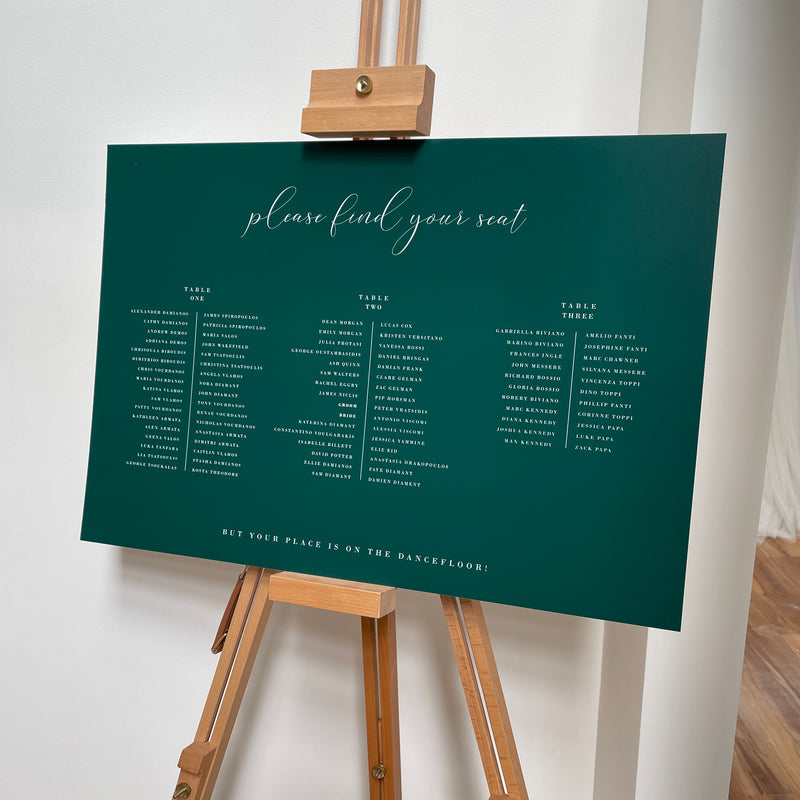 please find your seat
TABLE
ONE
ALEXANDER DAMIANOS
CATHY DAMIANOS
ANDREW DEMOS
ADRIANA DEMOS
CHRISOULA BIBOUDIS
DIMITRIOS BIBOUDIS
CHRIS VOURDANOS
MARIA VOURDANOS
KATINA VLAHOS
SAM VLAHOS
PATTY VOURDANOS
KATHLEEN ARMATA
ALEX ARMATA
GEENA VALOS
LUKA TANTARA
LIA TSATSOULIS
GEORGE TSOUKALAS
JAMES SPIROPOULOS
PATRICIA SPIROPOULOS
MARIA VALOS
JOHN WAKEFIELD
SAM TSATSOULIS
CHRISTINA TSATSOULIS
ANGELA VLAHOS
NORA DIAMANT
JOHN DIAMANT
TONY VOURDANOS
RENAE VOURDANOS
NICHOLAS VOURDANOS
ANASTASIA ARMATA
DIMITRI ARMATA
CAITLIN VLAHOS
STASHA DAMIANOS
KOSTA THEODORE
TABLE
TWO
DEAN MORGAN
EMILY MORGAN
JULIA PROTASI
GEORGE OUSTAMBASIDIS
ASH QUINN
SAM WALTERS
RACHEL EGGBY
JAMES NICLIS
GROOM
BRIDE
KATERINA DIAMANT
CONSTANTINO VOULGARAKIS
ISABELLE BILLETT
DAVID POTTER
ELLIE DAMIANOS
SAM DIAMANT
LUCAS COX
KRISTEN VERSITANO
VANESSA ROSSI
DANIEL BRINGAS
DAMIAN FRANK
CLARE GELMAN
ZAC GELMAN
PIP HORSMAN
PETER VRATSIDIS
ANTONIO VISCOMI
ALESSIA VISCOMI
JESSICA YAMMINE
ELIE EID
ANASTASIA DRAKOPOULOS
FAYE DIAMANT
DAMIEN DIAMENT
TABLE
THREE
GABRIELLA BIVIANO
MARINO BIVIANO
FRANCES INGLE
JOHN MESSERE
RICHARD BOSSIO
GLORIA BOSSIO
ROBERT BIVIANO
MARC KENNEDY
DIANA KENNEDY
JOSHUA KENNEDY
MAX KENNEDY
AMELIO FANTI
JOSEPHINE FANTI
MARC CHAWNER
SILVANA MESSERE
VINCENZA TOPPI
DINO TOPPI
PHILLIP FANTI
CORINNE TOPPI
JESSICA PAPA
LUKE PAPA
ZACK PAPA
BUT YOUR PLACE IS ON THE DANCEFLOOR!